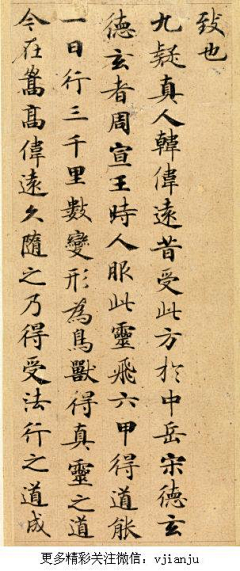 致也
九疑真人韓偉遠昔受此方於中岳宋德玄
德玄者周宣王時人服此靈飛六甲得道能
一日行三千里數變形為鳥獸得真靈之道
今在嵩高偉遠久隨之乃得受法行之道成
更多精彩关注微信：vjianju